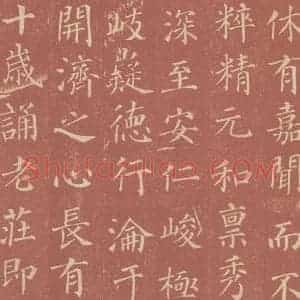 休有嘉聞而不
粹精元和禀秀
深至安仁峻極
岐嶷徳行淪于
開濟之心長有
十歲誦老莊即